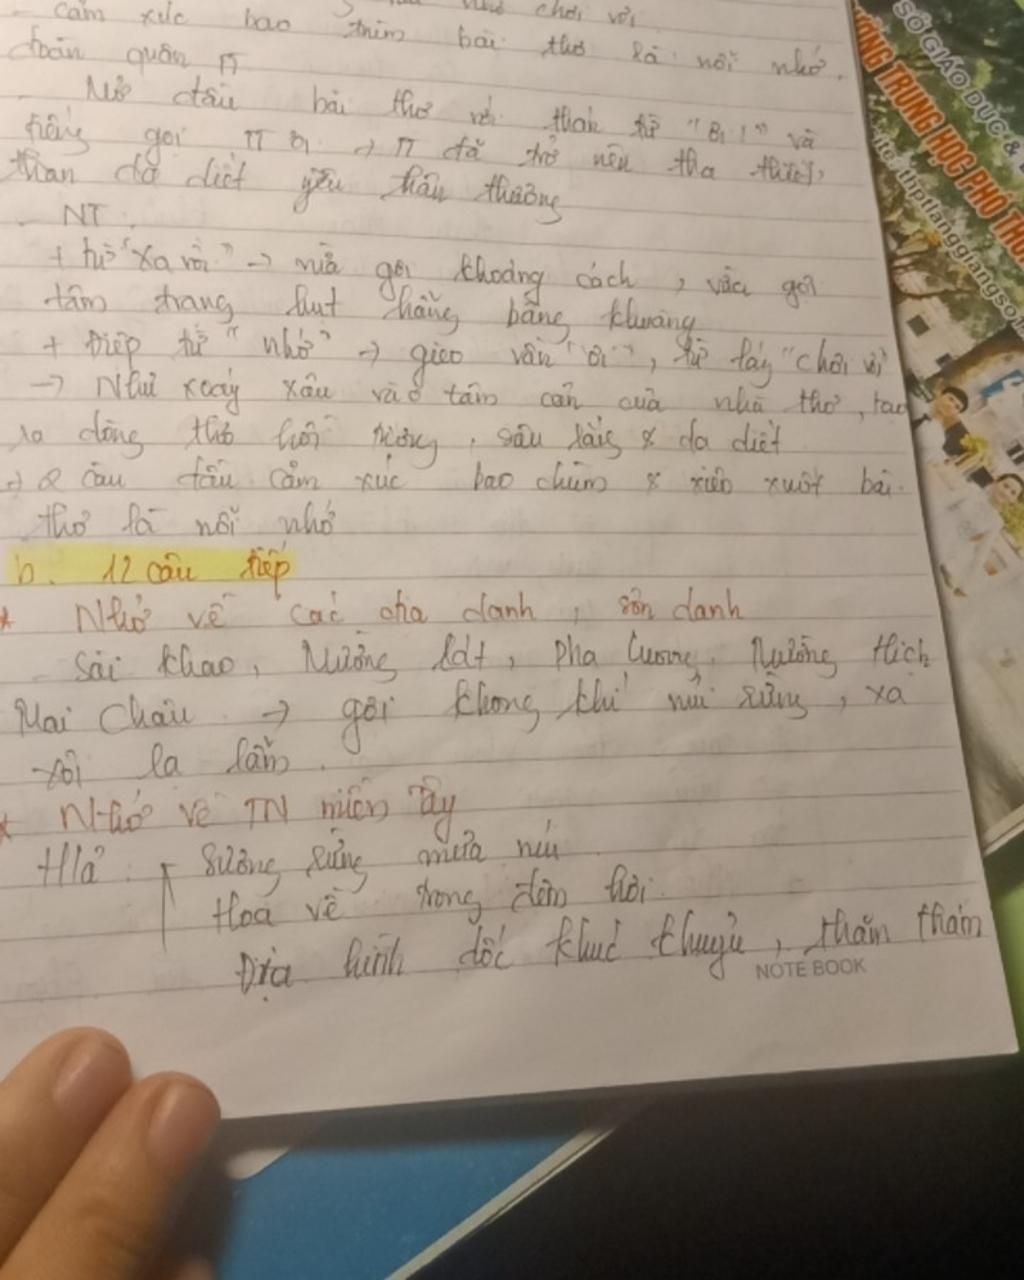 nhớ chơi vơi
- Cảm xúc bao trùm bài thơ là nỗi nhớ.
đoàn quân TT
- Mở đầu bài thơ với thán từ "ơi!" và
tiếng gọi TT ơi → TT đã trở nên tha thiết,
than da diết yêu thân thương
- NT:
+ từ "Xa rồi" → vừa gợi khoảng cách, vừa gợi
tâm trạng hụt hẫng bâng khuâng
+ Điệp từ "nhớ" → gieo vần "ơi", từ láy "chơi vơi"
→ Như xoáy sâu vào tâm can của nhà thơ, tạo
ra dòng thơ hồi tưởng, sâu lắng & da diết
→ 2 câu đầu cảm xúc bao chùm & xiên xuốt bài
thơ là nỗi nhớ
b. 12 câu tiếp
* Nhớ về các địa danh, sơn danh
Sài Khao, Mường Lát, Pha Luông, Mường Hịch
Mai Châu → gợi không khí núi rừng, xa
xôi lạ lẫm.
* Nhớ về TN miền Tây
H/ả: Sương rừng mưa núi
Hoa về trong đêm hơi
Địa hình dốc khúc khuỷu, thăm thẳm
NOTE BOOK
SỞ GIÁO DỤC &
ƯỜNG TRUNG HỌC PHỔ THÔ
ite:thptlanggiangso1